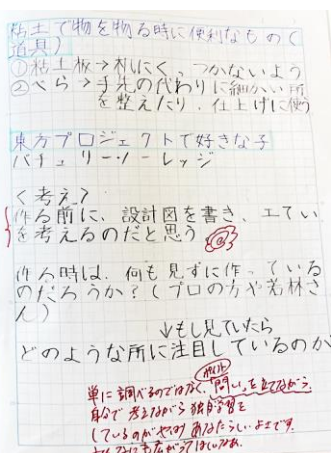 粘土で物を物る時に便利なもの(
道具)
①粘土板→机にくっつかないよう
②へら→手先の代わりに細かい所
を整えたり、仕上げに使う
東方プロジェクトで好きな子
パチュリーノーレッジ
<考え>
作る前に、設計図を書き、工てい
を考えるのだと思う
作る時は、何も見ずに作っている
のだろうか?(プロの方や若林さ
ん)
↓もし見ていたら
どのような所に注目しているのか
ポイント
単に調べるのではなく、「問い」を立てながら、
自分で考えながら独自学習を
しているのがやはりあなたらしいよさです。